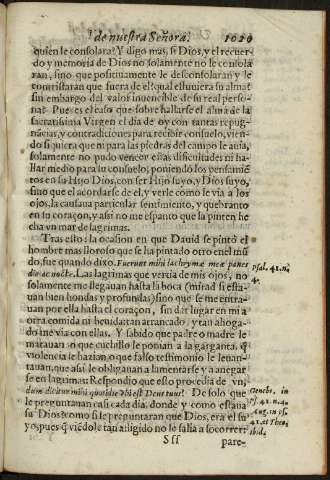 de nuestra Señora. 1029
quien le consolara? Y digo mas, si Dios, y el recuer-
do y memoria de Dios no solamente no le consola
ran, sino que positiuamente le desconsolaran y le
contristaran que fuera de el qual estuuiera su alma?
sin embargo del valor inuencible de su real perso-
na? Pues es el caso que sobre hallarse el alma de la
sacratissima Virgen el dia de oy con tantas repug-
nãcias, y contradiciones para recibir consuelo, vien-
do si quiera que ni para las piedras del campo le auia,
solamente no pudo vencer estas dificultades ni ha-
llar medio para su consuelo; poniendo los pensamiẽ
tos en su Hijo Dios, con ser Hijo suyo, y Dios suyo,
sino que el acordarse de el, y verle como le via a los
ojos, la causaua particular sentimiento, y quebranto
en su coraçon, y assi no me espanto que la pinten he
cha vn mar de lagrimas.
Tras esto: la ocasion en que Dauid se pintò el
hombre mas lloroso que se ha pintado otro en el mũ
do, fue quando dixo. Fuerunt mihi lachrymæ meæ panes
die ac nocte. Las lagrimas que vertia de mis ojos, no
solamente me llegauan hasta la boca (mirad si esta-
uan bien hondas y profundas) sino que se me entra-
uan por ella hasta el coraçon, sin dar lugar en mi a
otra comida ni beuida tan atrancado, y tan ahoga-
do me via con ellas. Y sabido que padre o madre le
matauan o que cuchillo le ponian a la garganta. q̃
violencia le hazian o que falso testimonio le leuan-
tauan, que assi le obligauan a lamentarse y a anegar
se en lagrimas: Respondio que esto procedia de vn,
dum dicitur mihi quotidie vbi est Deus tuus? De solo que
le preguntauan casi cada dia, donde y como estaua
su Dios: como si le preguntaran que Dios, era el su
yo, pues q̃ viẽdole tan afligido no le salia a socorrer:
Psal. 41. n.
4.
Genebr. in
ps. 41. n. 4.
Aug. in ps.
41. et Theo
ibid.
Sss pare-